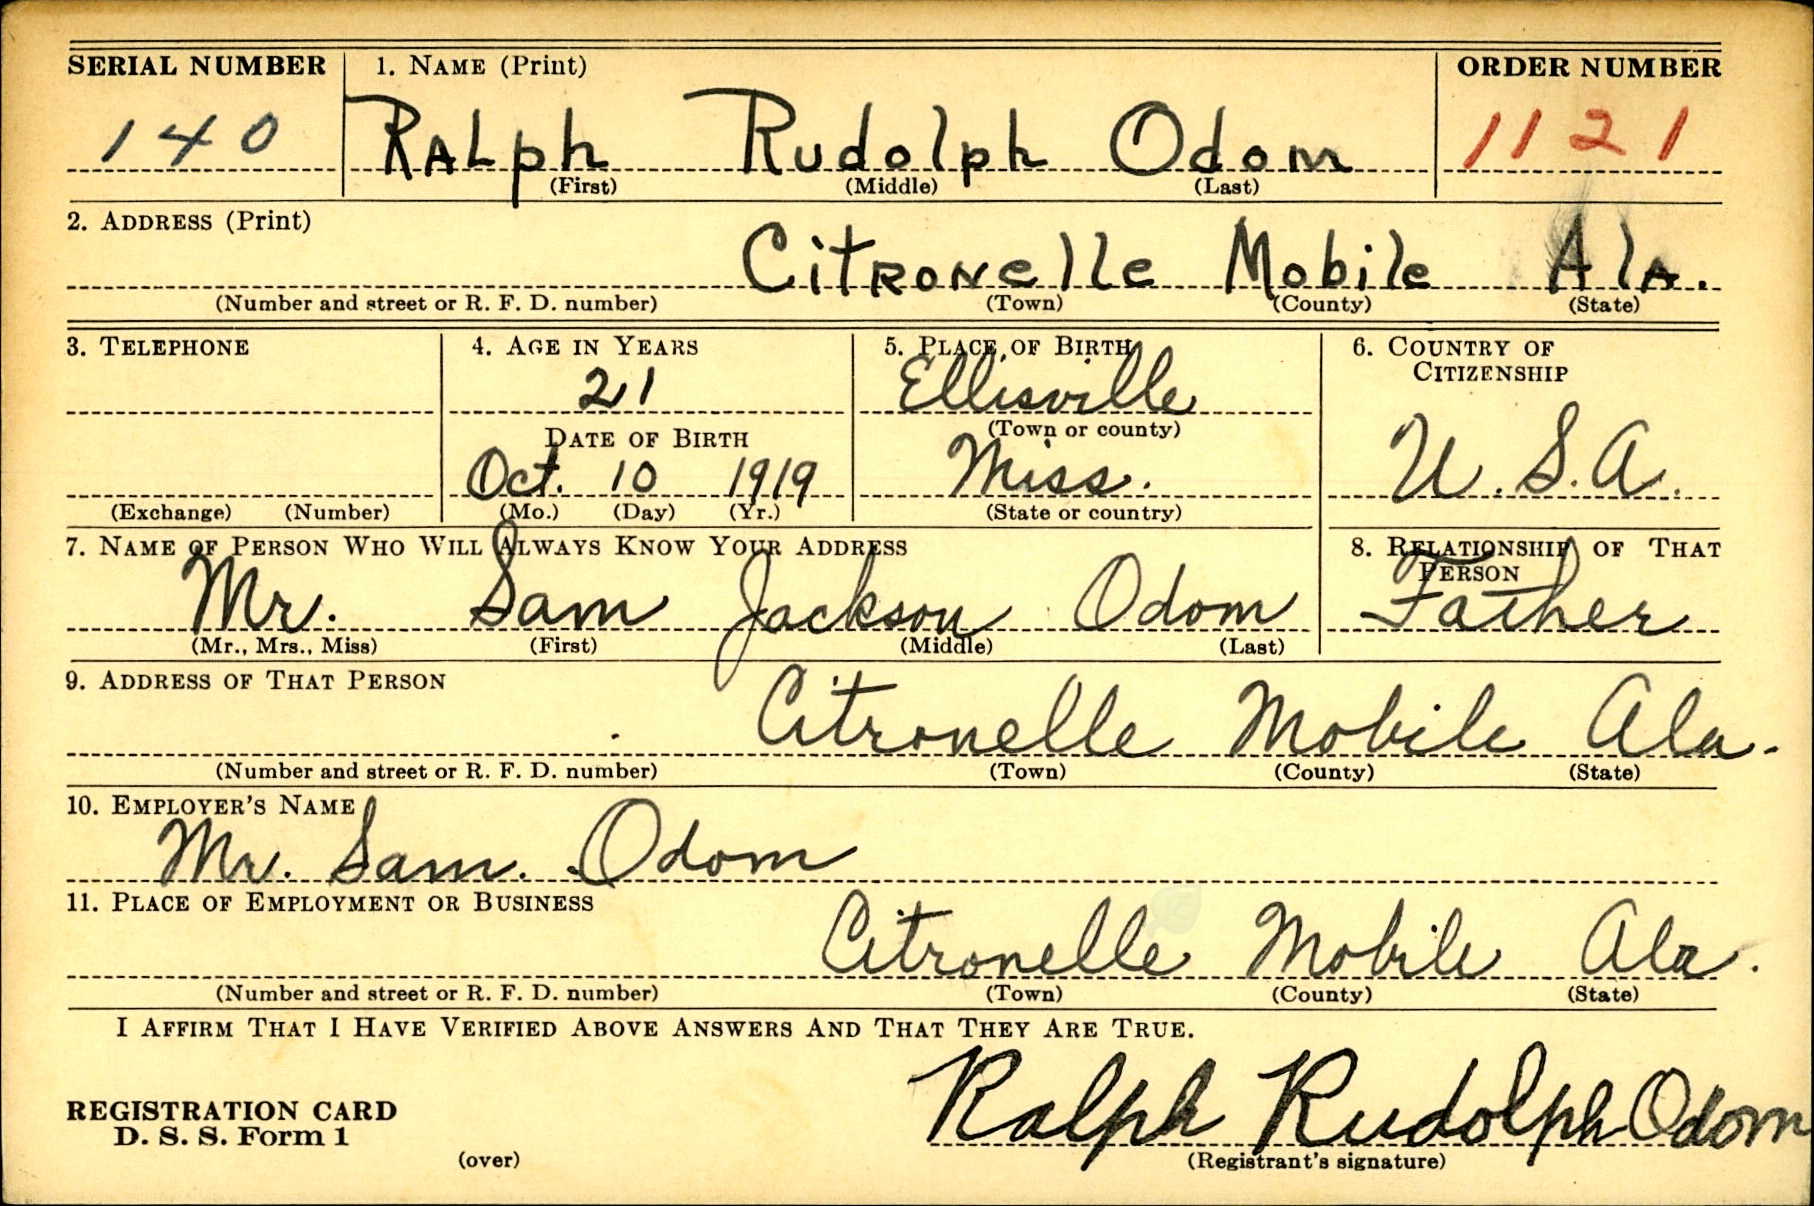 SERIAL NUMBER 1. NAME (Print) ORDER NUMBER
140 RALph Rudolph Odom 1121
(First) (Middle) (Last)
2. ADDRESS (Print)
CitRoNelle Mobile AlA.
(Number and street or R. F. D. number) (Town) (County) (State)
3. TELEPHONE 4. AGE IN YEARS 5. PLACE OF BIRTH 6. COUNTRY OF
CITIZENSHIP
21 Ellisville
DATE OF BIRTH (Town or county)
Oct. 10 1919 Miss. U.S.A.
(Exchange) (Number) (Mo.) (Day) (Yr.) (State or country)
7. NAME OF PERSON WHO WILL ALWAYS KNOW YOUR ADDRESS 8. RELATIONSHIP OF THAT
PERSON
Mr. Sam Jackson Odom Father
(Mr., Mrs., Miss) (First) (Middle) (Last)
9. ADDRESS OF THAT PERSON
Citronelle Mobile Ala.
(Number and street or R. F. D. number) (Town) (County) (State)
10. EMPLOYER'S NAME
Mr. Sam. Odom
11. PLACE OF EMPLOYMENT OR BUSINESS
Citronelle Mobile Ala.
(Number and street or R. F. D. number) (Town) (County) (State)
I AFFIRM THAT I HAVE VERIFIED ABOVE ANSWERS AND THAT THEY ARE TRUE.
Ralph Rudolph Odom
REGISTRATION CARD
D. S. S. Form 1
(over) (Registrant's signature)